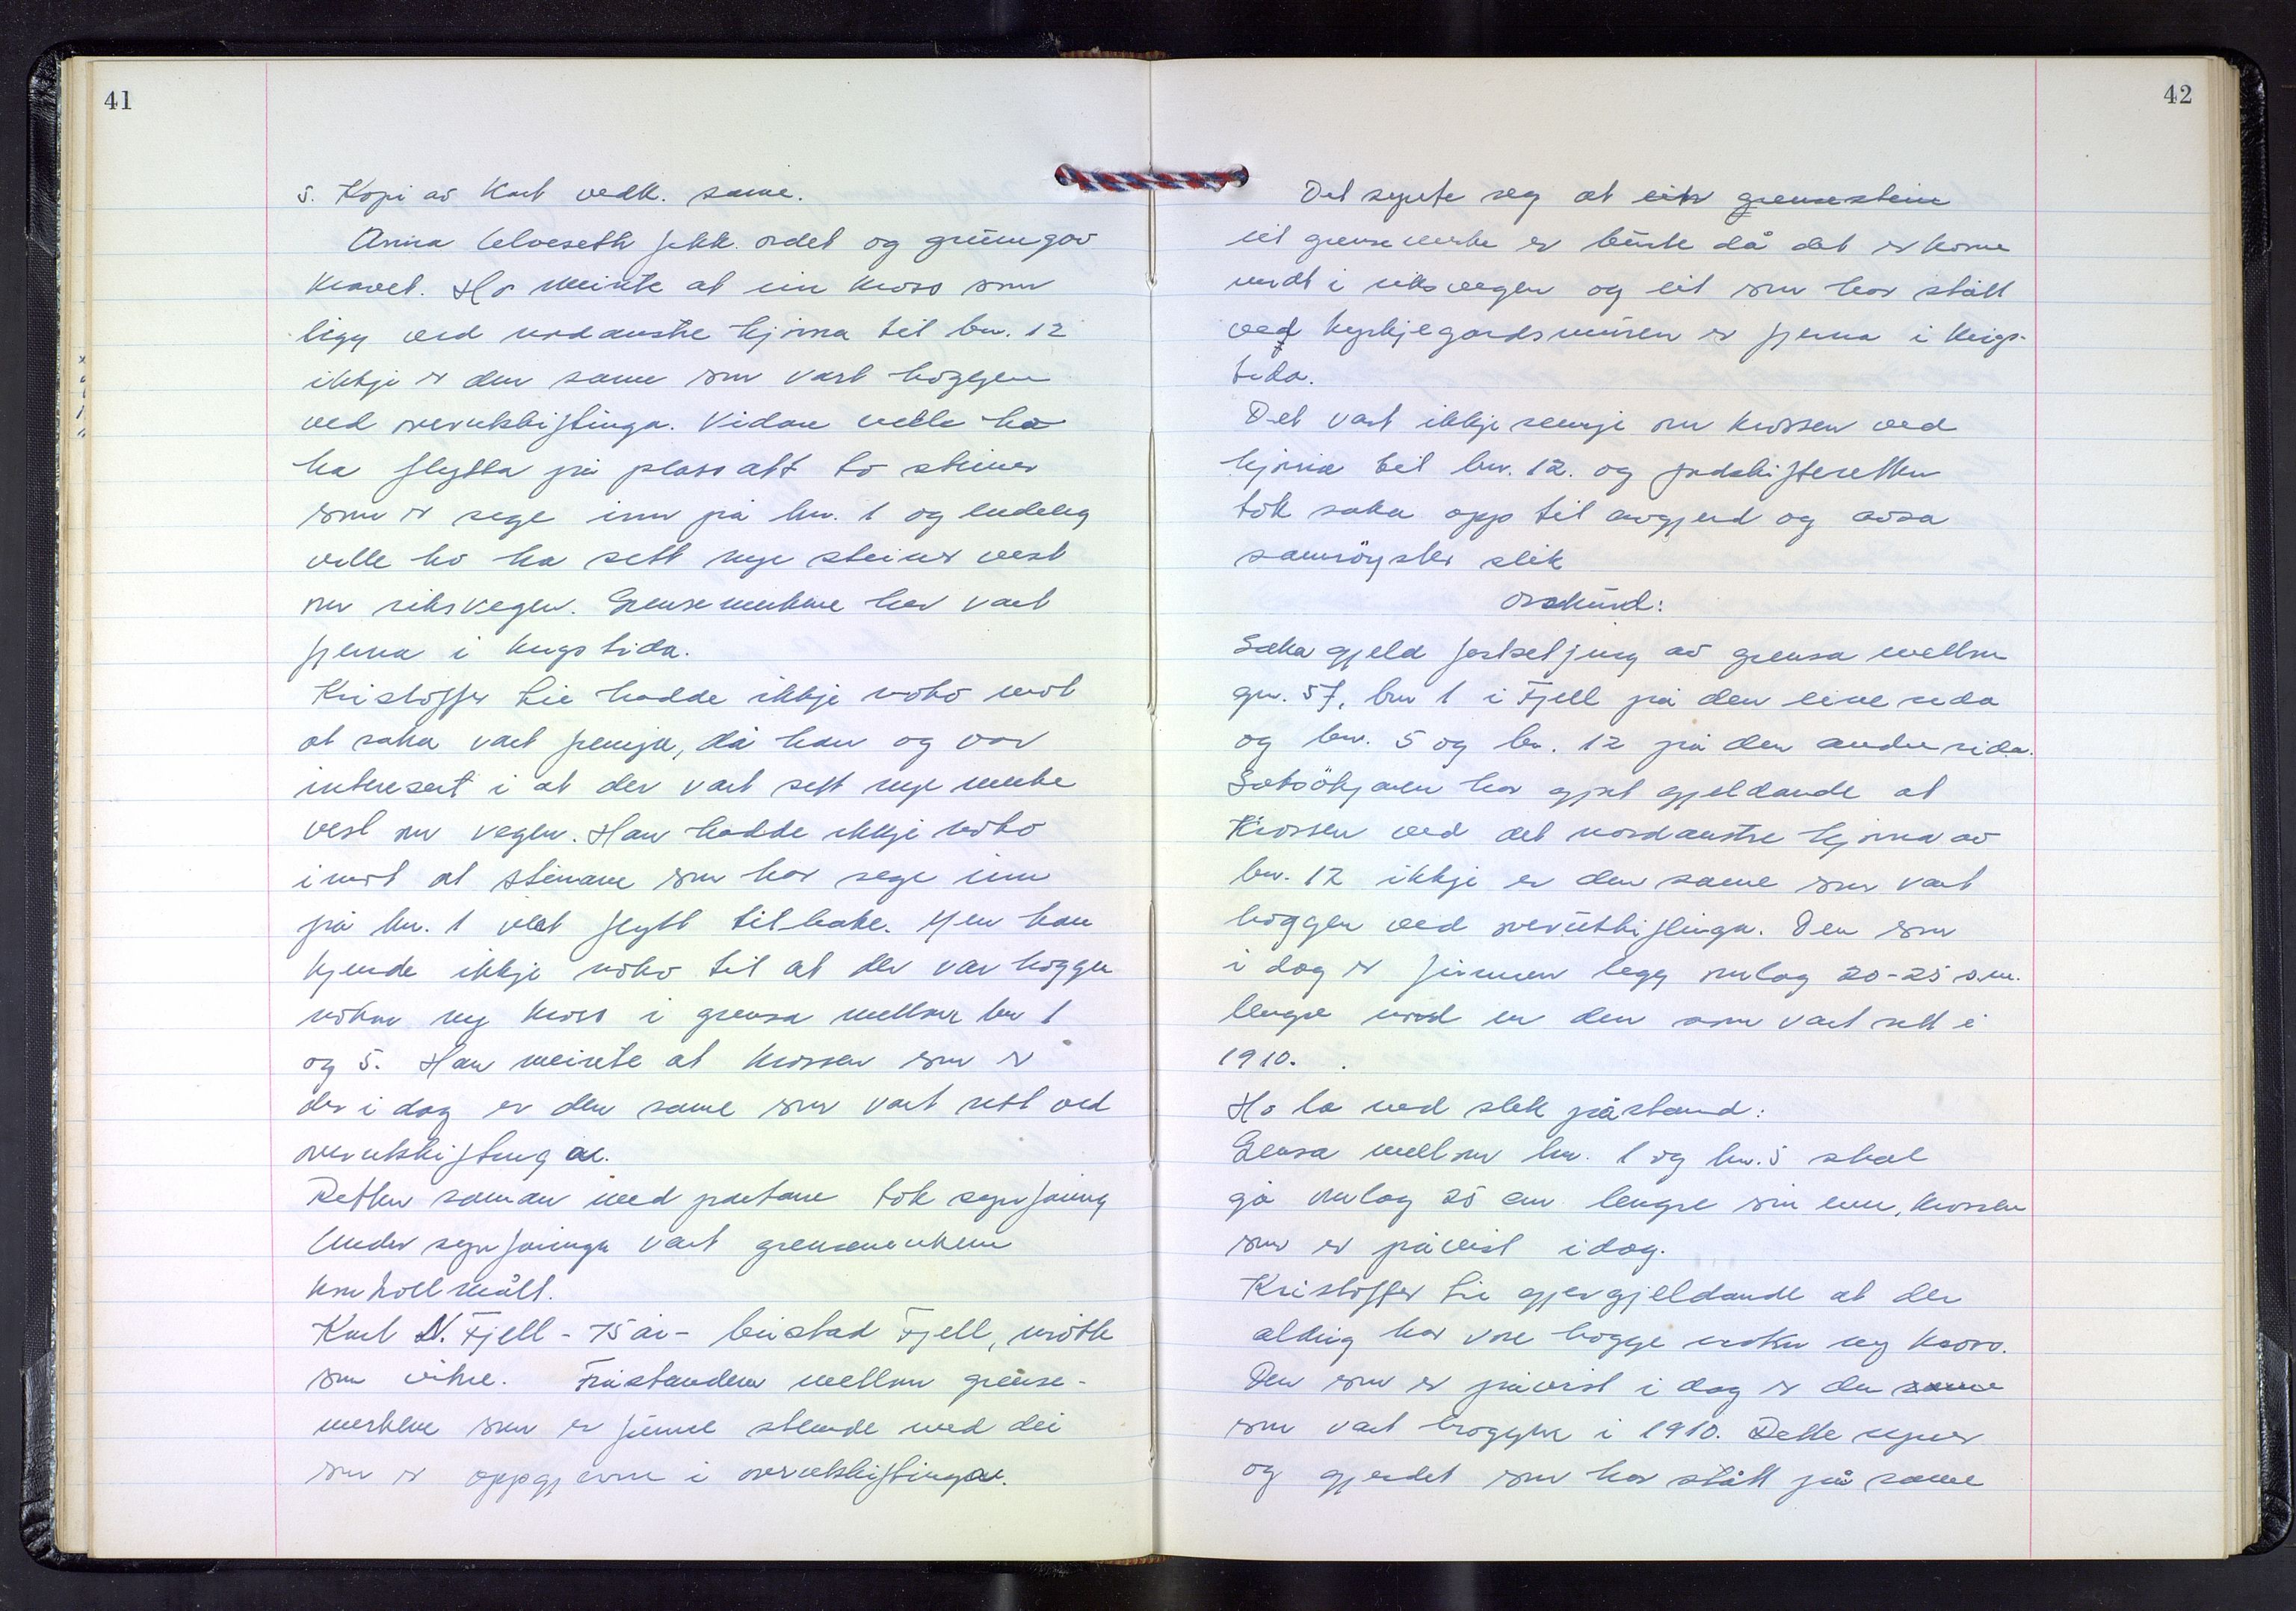 41
5. Kopi av Kart vedk. same.
Anna Ulveseth fekk ordet og grunngav
kravet. Ho meinte at ein kross som
ligg ved nordaustre hjörna til bn. 12
ikkje er den same som vart hoggen
ved overutskiftinga. Vidare ville ho
ha flytta på plass att to steiner
som er sege inn på bn. 1 og endeleg
ville ho ha sett nye steiner vest
om riksvegen. Grensemerkene her vart
fjerna i krigstida.
Kristoffer Lie hadde ikkje noko mot
at saka vart fremja, då han og var
interesert i at der vart sett nye merke
vest om vegen. Han hadde ikkje noko
imot at steinane som har sege inn
på bn. 1 vart flytt tilbake. Men han
kjende ikkje noko til at der var hogge
nokon ny kross i grensa mellom bn 1
og 5. Han meinte at krossen som er
der i dag er den same som vart sett ved
overutskiftingae.
Retten saman med partane tok synfaring
Under synfaringa vart grensemerkene
kontrollmålt.
Karl N. Fjell - 75 år - bustad Fjell, mötte
som vitne. Fråstanden mellom grense-
merkene som er funne stemde med dei
som er oppgjevne i overutskiftingae.
42
Det synte seg at ein grensestein
eit grensemerke er burte då det er kome
midt i riksvegen og eit som har stått
ved kyrkjegardsmuren er fjerna i krigs-
tida.
Det vart ikkje semje om krossen ved
hjörna til bn. 12. og jordskifteretten
tok saka opp til avgjerd og avsa
samröystes slik
Orskurd:
Saka gjeld fastsetjing av grensa mellom
gn. 57, bn 1 i Fjell på den eine sida
og bn. 5 og bn. 12 på den andre sida.
Saksökjaren har gjort gjeldande at
Krossen ved det nordaustre hjörna av
bn. 12 ikkje er den same som vart
hoggen ved overutskiftinga. Den som
i dag er funnen ligg omlag 20-25 sm.
lengre nord en den som vart sett i
1910.
Ho la ned slik påstand:
Grensa mellom bn. 1 og bn. 5 skal
gå omlag 25 cm lengre sör enn, krossen
som er påvist idag.
Kristoffer Lie gjer gjeldande at der
aldrig har vore hogge nokon ny kross.
Den som er påvist i dag er den same
som vart hoggen i 1910. Dette syner
og gjerdet som har stått på same